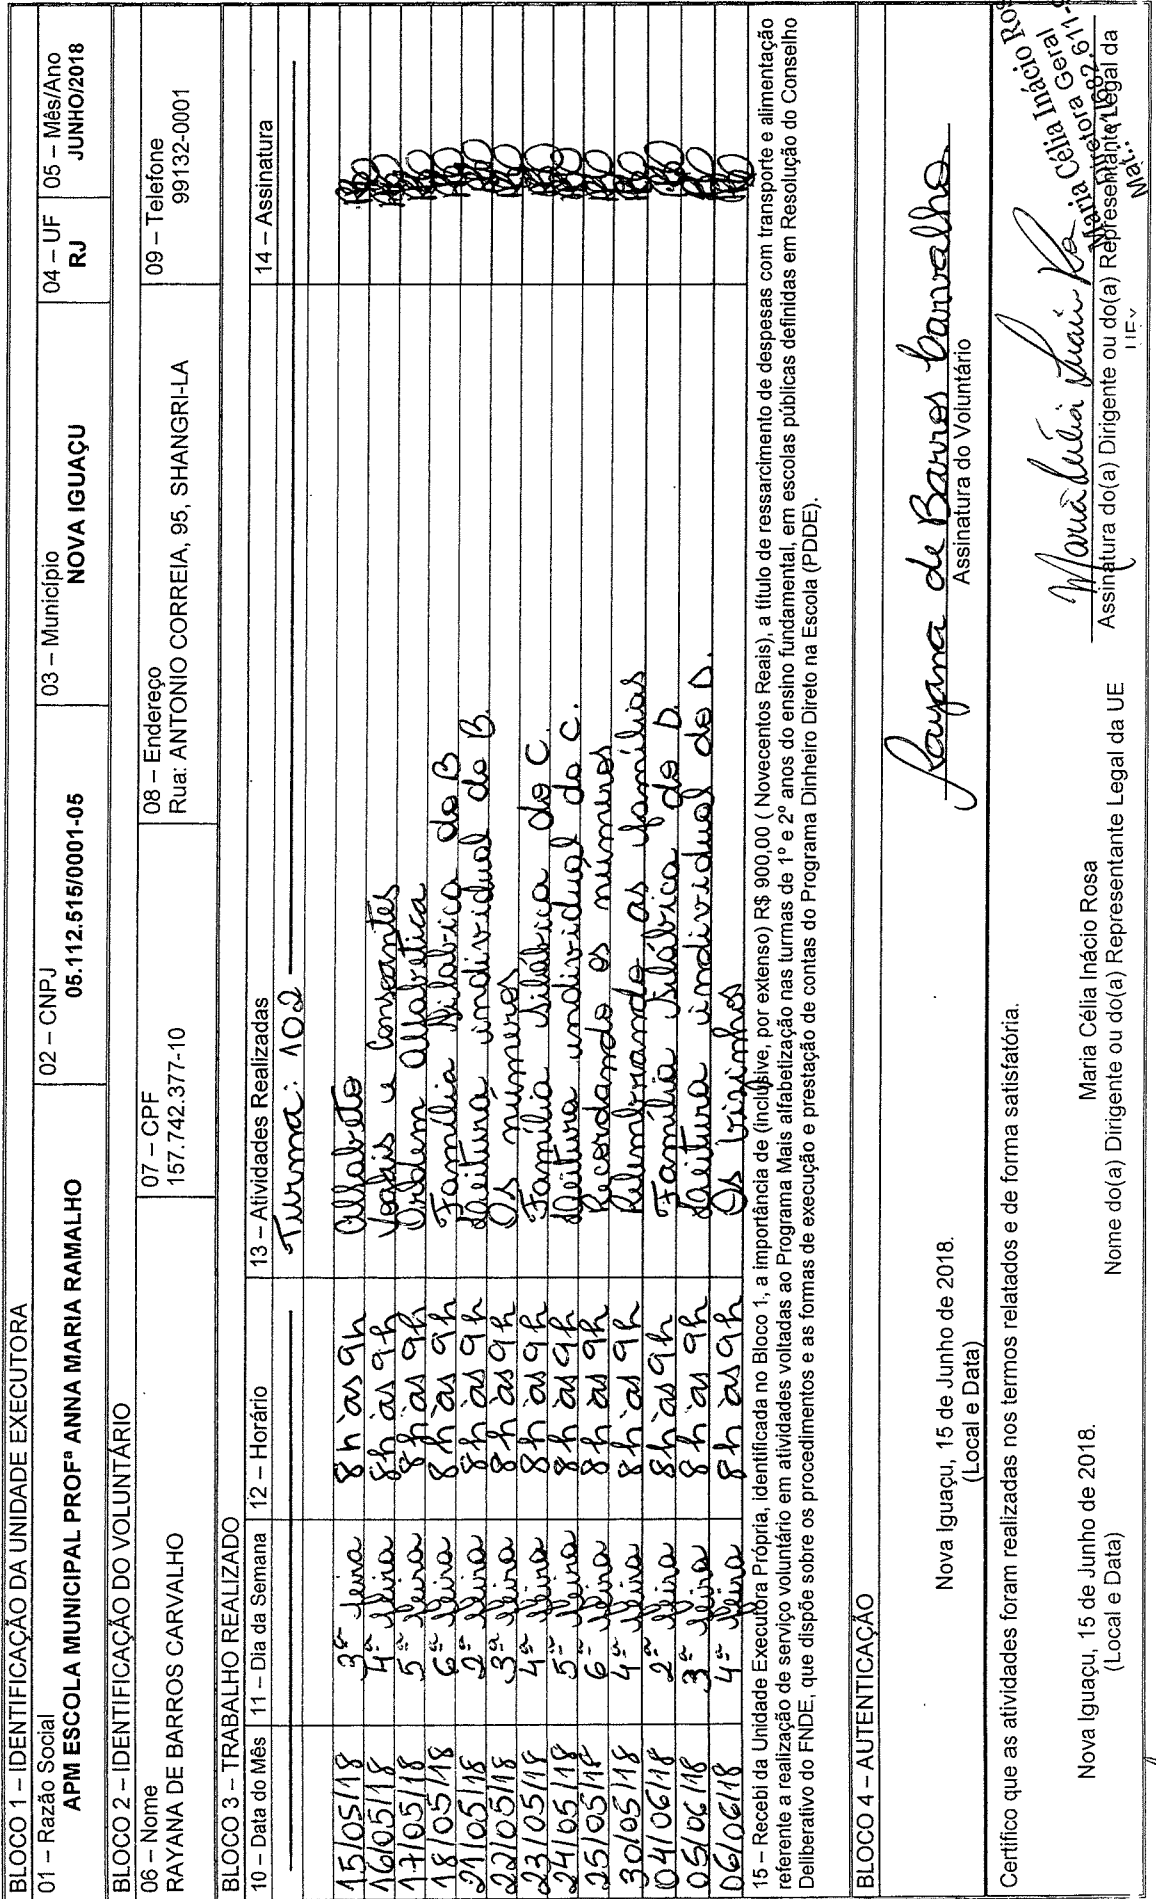 BLOCO 1 – IDENTIFICAÇÃO DA UNIDADE EXECUTORA
01 – Razão Social 02 – CNPJ 03 – Município 04 – UF 05 – Mês/Ano
APM ESCOLA MUNICIPAL PROFª ANNA MARIA RAMALHO 05.112.515/0001-05 NOVA IGUAÇU RJ JUNHO/2018
BLOCO 2 – IDENTIFICAÇÃO DO VOLUNTÁRIO
06 – Nome 07 – CPF 08 – Endereço 09 – Telefone
RAYANA DE BARROS CARVALHO 157.742.377-10 Rua: ANTONIO CORREIA, 95, SHANGRI-LA 99132-0001
BLOCO 3 – TRABALHO REALIZADO
10 – Data do Mês 11 – Dia da Semana 12 – Horário 13 – Atividades Realizadas 14 – Assinatura
Turma: 102
15/05/18 3ª feira 8h às 9h Alfabeto
16/05/18 4ª feira 8h às 9h Vogais e Consoantes
17/05/18 5ª feira 8h às 9h Ordem Alfabética
18/05/18 6ª feira 8h às 9h Família Silábica do B
21/05/18 2ª feira 8h às 9h Leitura individual do B.
22/05/18 3ª feira 8h às 9h Os números
23/05/18 4ª feira 8h às 9h Família Silábica do C.
24/05/18 5ª feira 8h às 9h Leitura individual do C.
25/05/18 6ª feira 8h às 9h Recordando os números
30/05/18 4ª feira 8h às 9h Relembrando as famílias
04/06/18 2ª feira 8h às 9h Família Silábica do D.
05/06/18 3ª feira 8h às 9h Leitura individual do D.
06/06/18 4ª feira 8h às 9h Os vizinhos
15 – Recebi da Unidade Executora Própria, identificada no Bloco 1, a importância de (inclusive, por extenso) R$ 900,00 ( Novecentos Reais), a título de ressarcimento de despesas com transporte e alimentação
referente a realização de serviço voluntário em atividades voltadas ao Programa Mais alfabetização nas turmas de 1º e 2º anos do ensino fundamental, em escolas públicas definidas em Resolução do Conselho
Deliberativo do FNDE, que dispõe sobre os procedimentos e as formas de execução e prestação de contas do Programa Dinheiro Direto na Escola (PDDE).
BLOCO 4 – AUTENTICAÇÃO
Nova Iguaçu, 15 de Junho de 2018. Rayana de Barros Carvalho
(Local e Data) Assinatura do Voluntário
Certifico que as atividades foram realizadas nos termos relatados e de forma satisfatória.
Maria Célia Inácio Ros
Diretora Geral
Mat.:
Nova Iguaçu, 15 de Junho de 2018. Maria Célia Inácio Rosa
(Local e Data) Nome do(a) Dirigente ou do(a) Representante Legal da UE Assinatura do(a) Dirigente ou do(a) Representante Legal da
UEx